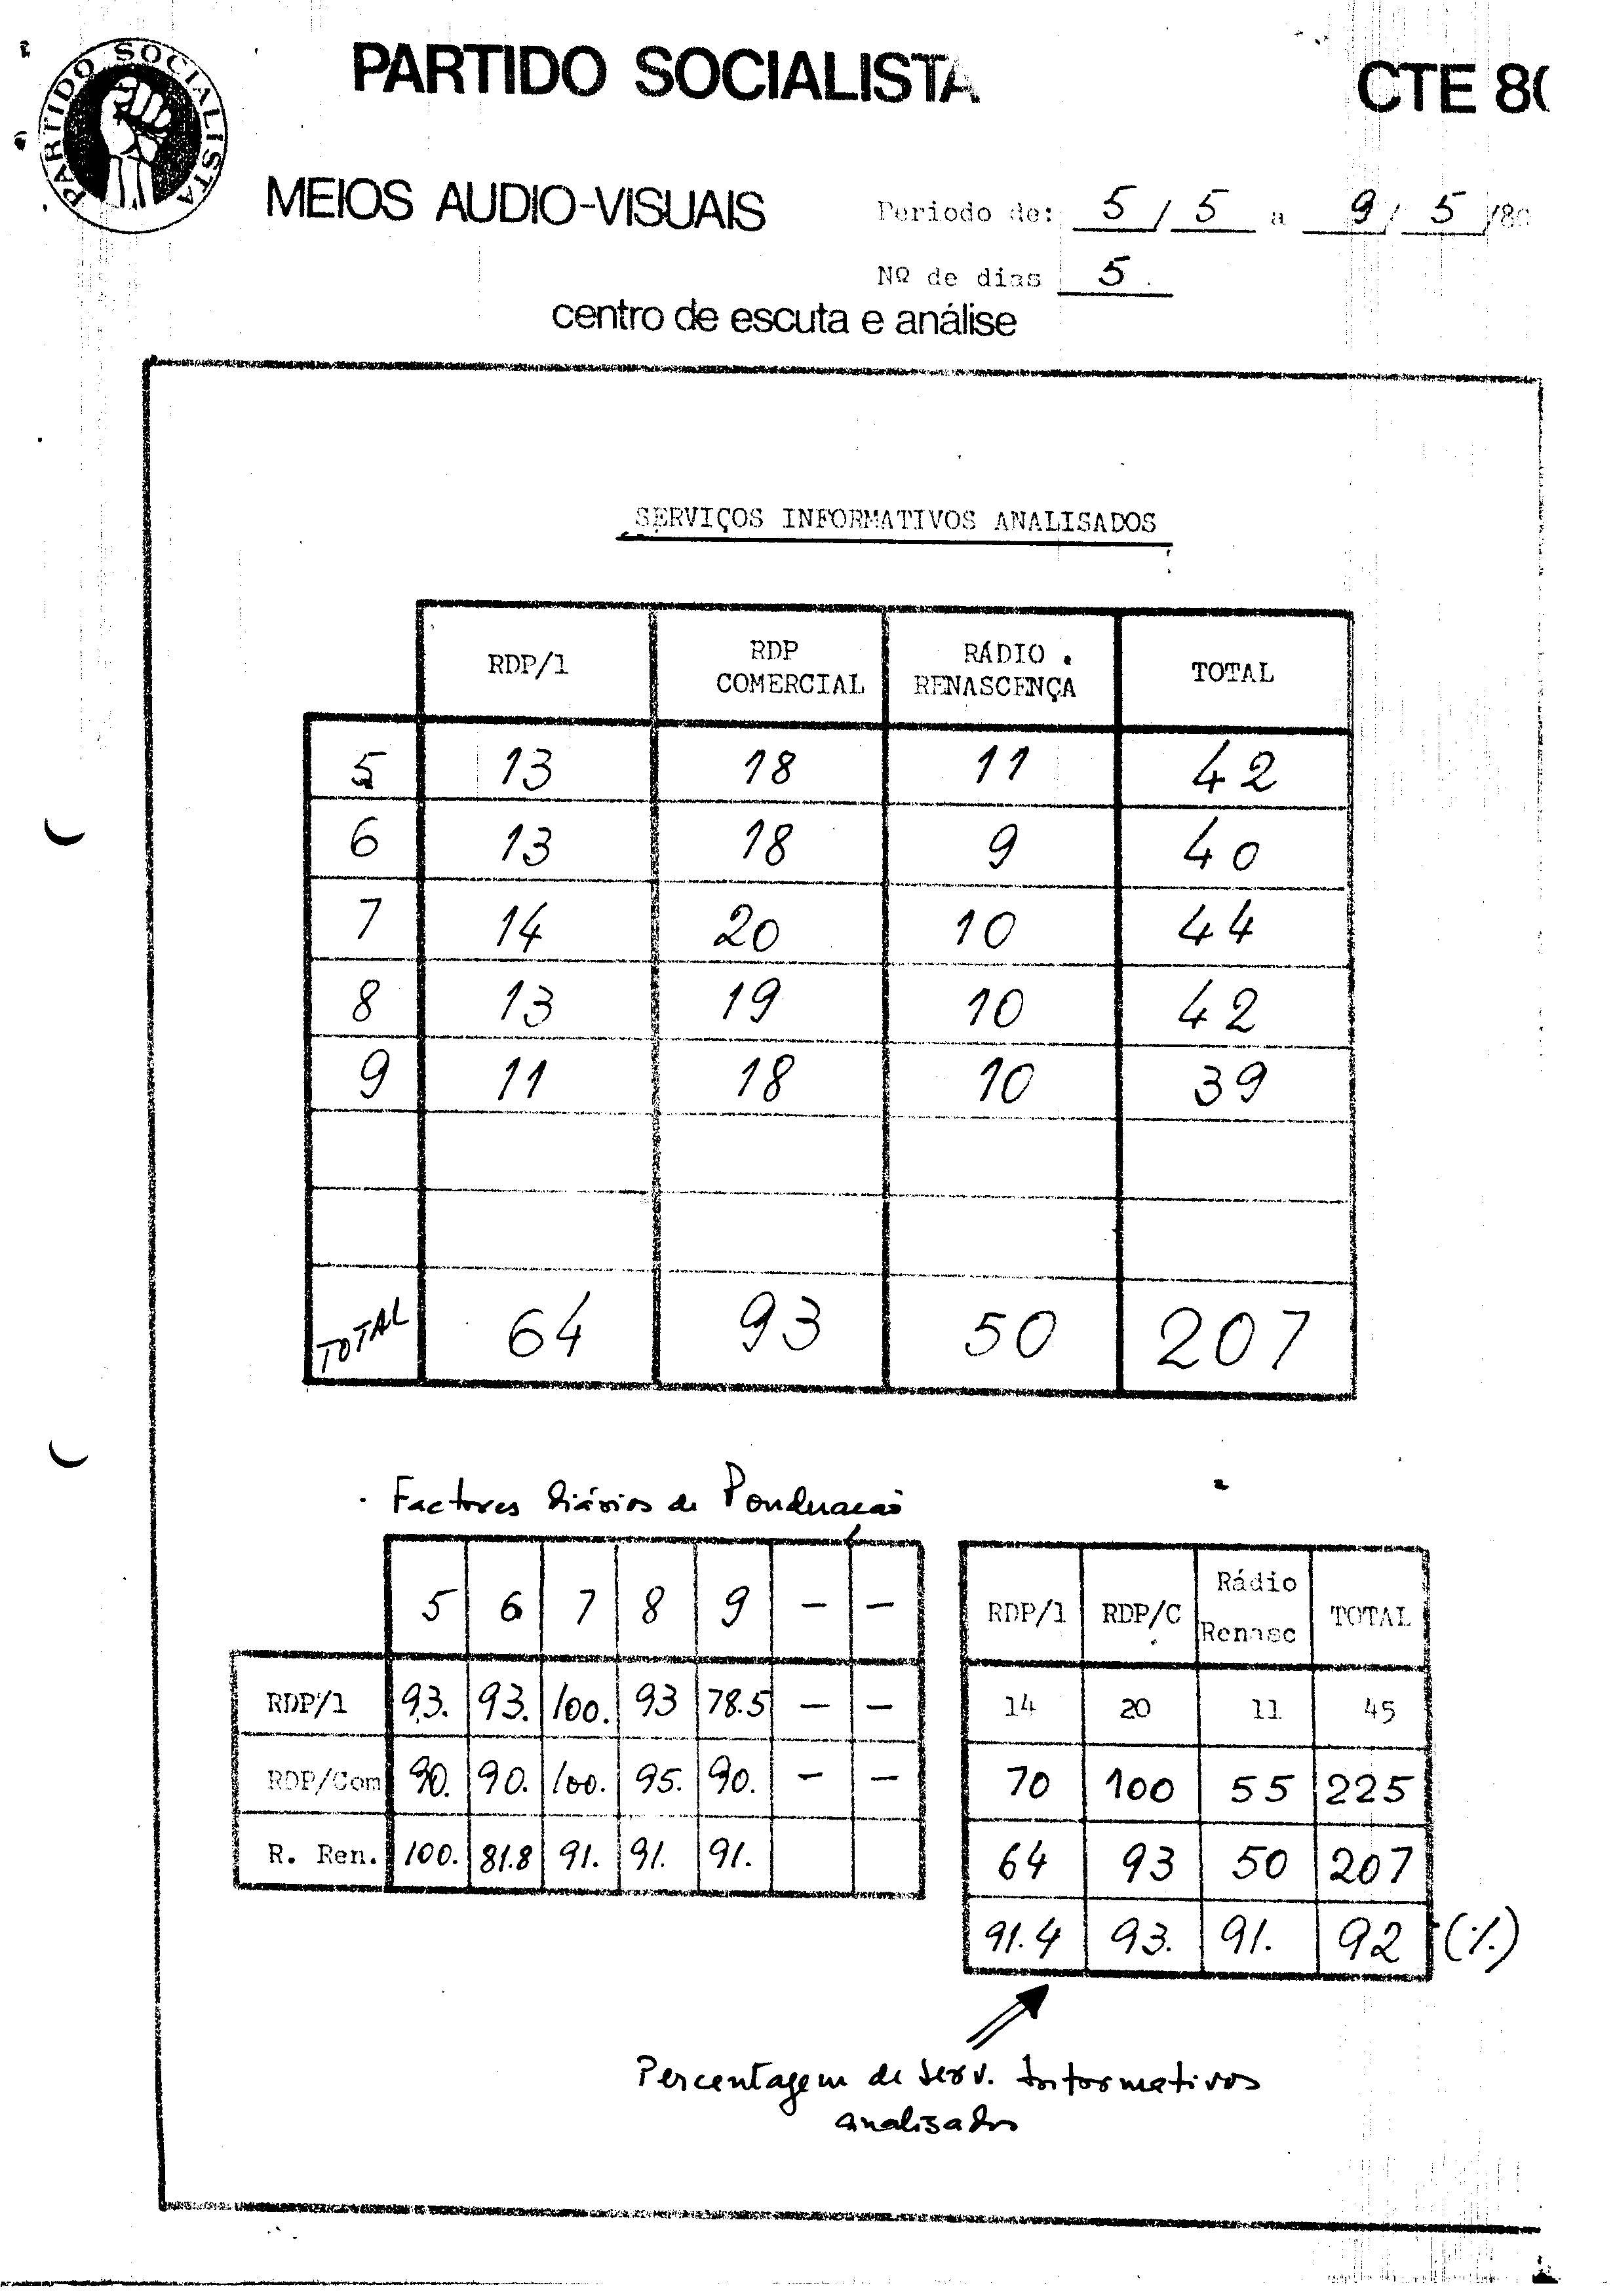 PARTIDO SOCIALISTA
PARTIDO SOCIALISTA
CTE 80
MEIOS AUDIO-VISUAIS
Periodo de: 5 / 5 a 9 / 5 /80
Nº de dias 5
centro de escuta e análise
SERVIÇOS INFORMATIVOS ANALISADOS
RDP/1 RDP COMERCIAL RÁDIO RENASCENÇA TOTAL
5 13 18 11 42
6 13 18 9 40
7 14 20 10 44
8 13 19 10 42
9 11 18 10 39
TOTAL 64 93 50 207
Factores Diários de Ponderação
5 6 7 8 9 — —
RDP/1 93. 93. 100. 93 78.5 — —
RDP/Com 90. 90. 100. 95. 90. — —
R. Ren. 100. 81.8 91. 91. 91.
RDP/1 RDP/C Rádio Renasc TOTAL
14 20 11 45
70 100 55 225
64 93 50 207
91.4 93. 91. 92 (%)
Percentagem de serv. Informativos
analisados